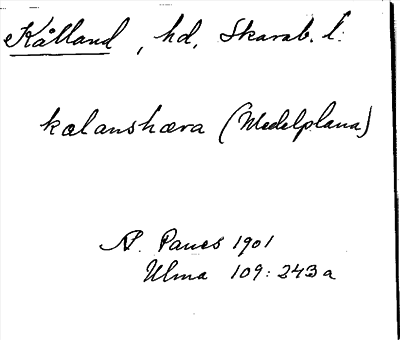 Kålland, hd, Skarab. l:
kælanshæra (Medelplana)
N. Pauес 1901
Ulma 109:243a